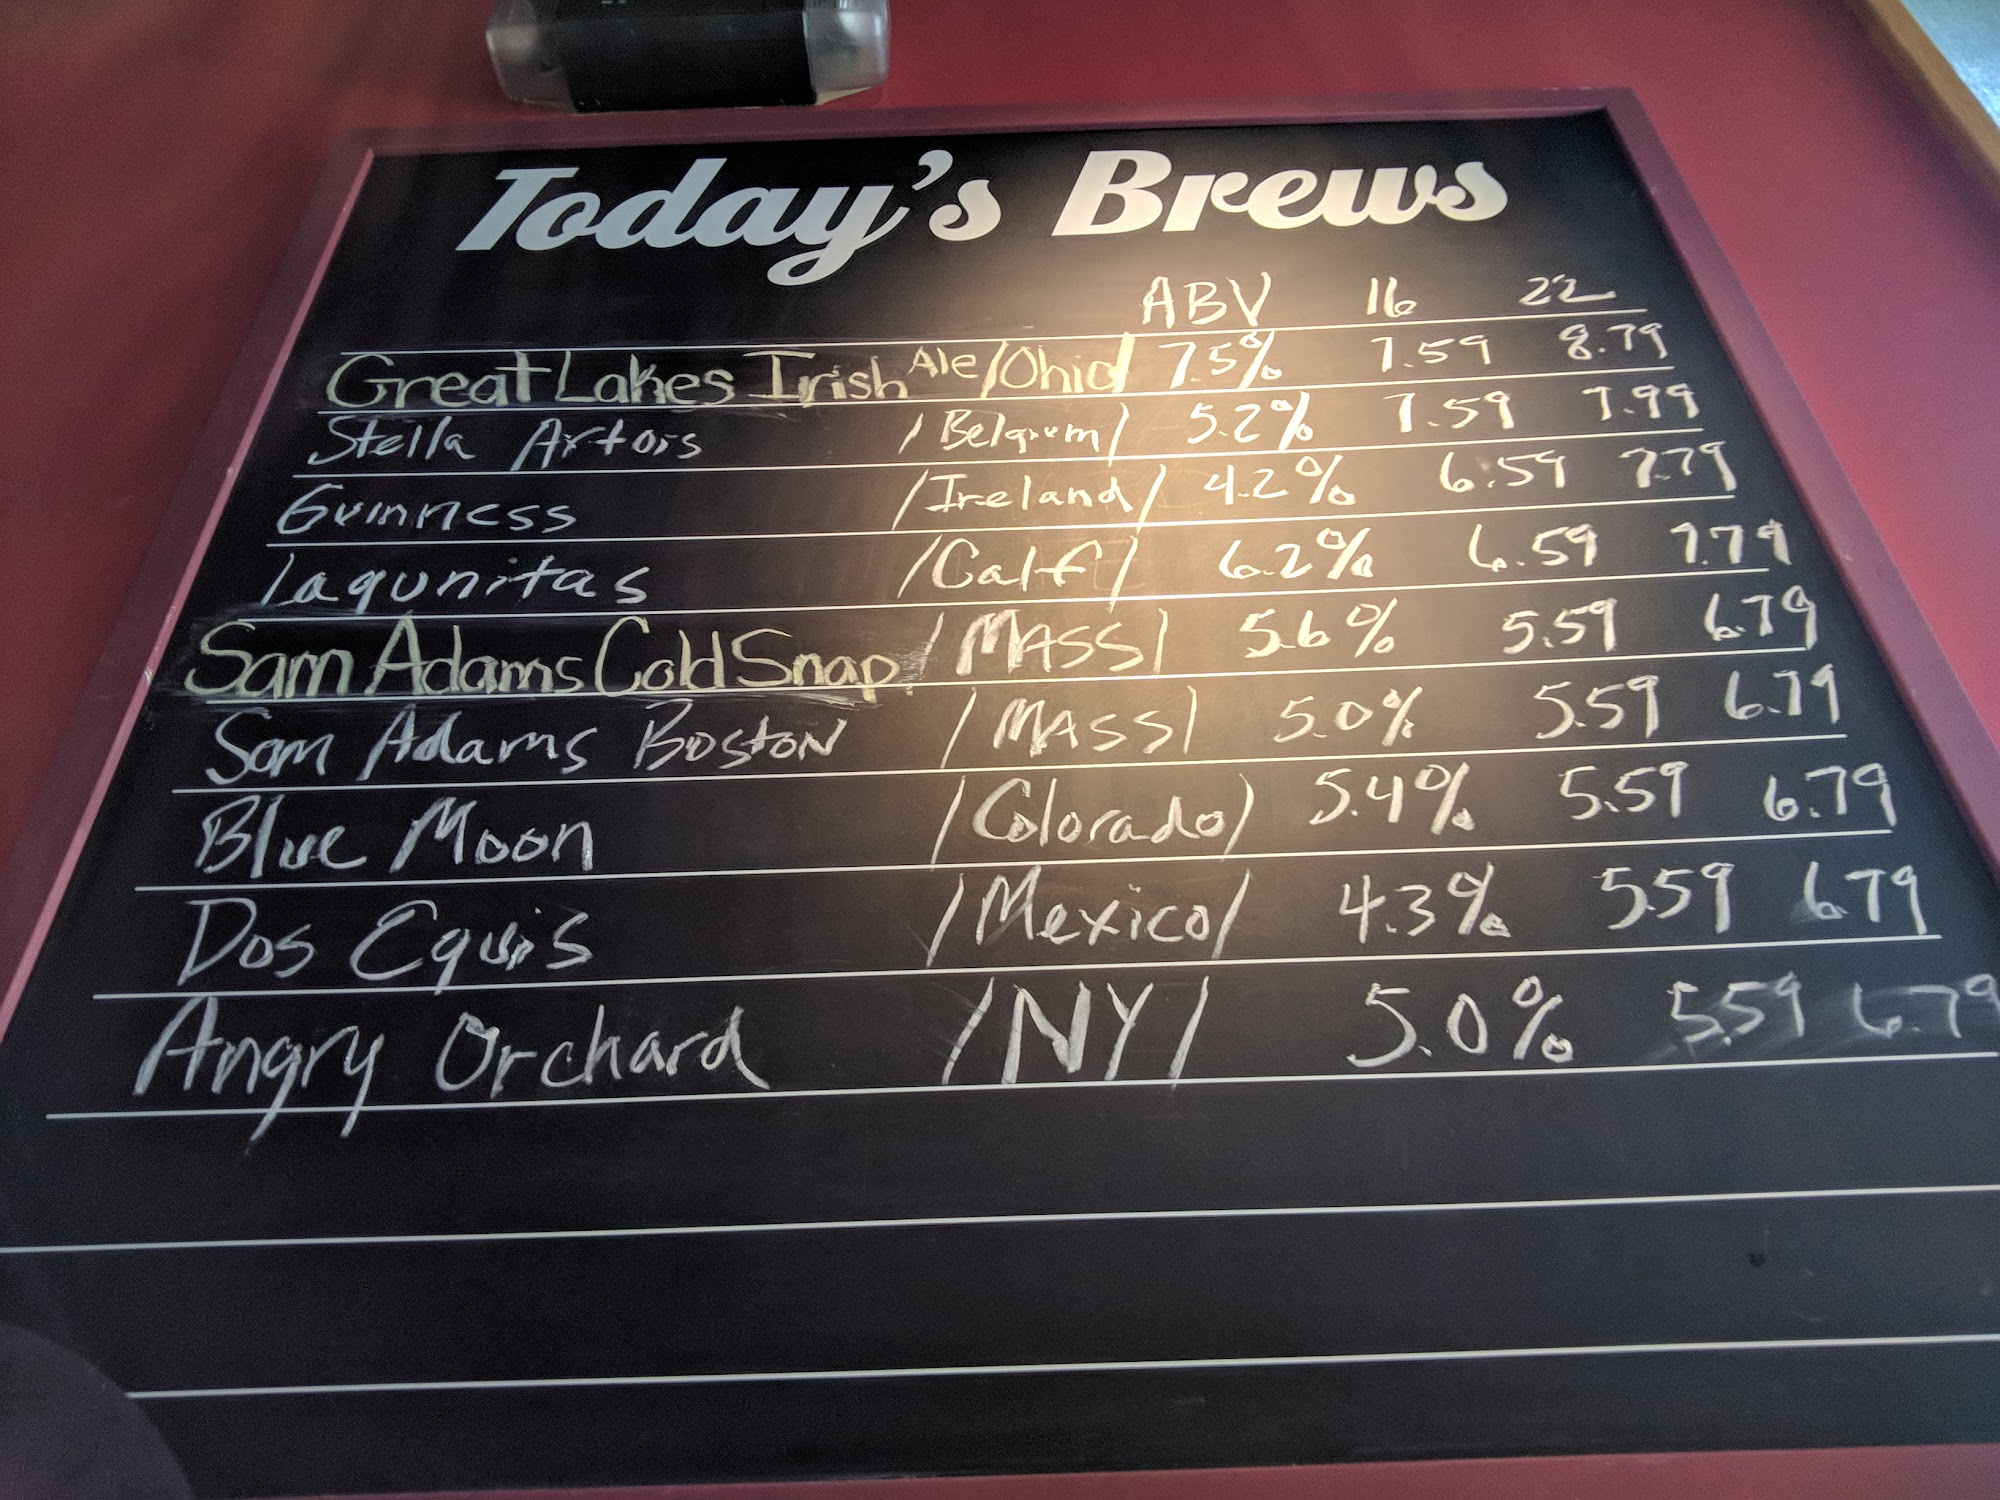 Today's Brews
ABV 16 22
Great Lakes Irish Ale/Ohio/ 7.5% 7.59 8.79
Stella Artois /Belgium/ 5.2% 7.59 7.99
Guinness /Ireland/ 4.2% 6.59 7.79
Lagunitas /Calf/ 6.2% 6.59 7.79
Sam Adams Cold Snap /MASS/ 5.6% 5.59 6.79
Sam Adams Boston /MASS/ 5.0% 5.59 6.79
Blue Moon /Colorado/ 5.4% 5.59 6.79
Dos Equis /Mexico/ 4.3% 5.59 6.79
Angry Orchard /NY/ 5.0% 5.59 6.79